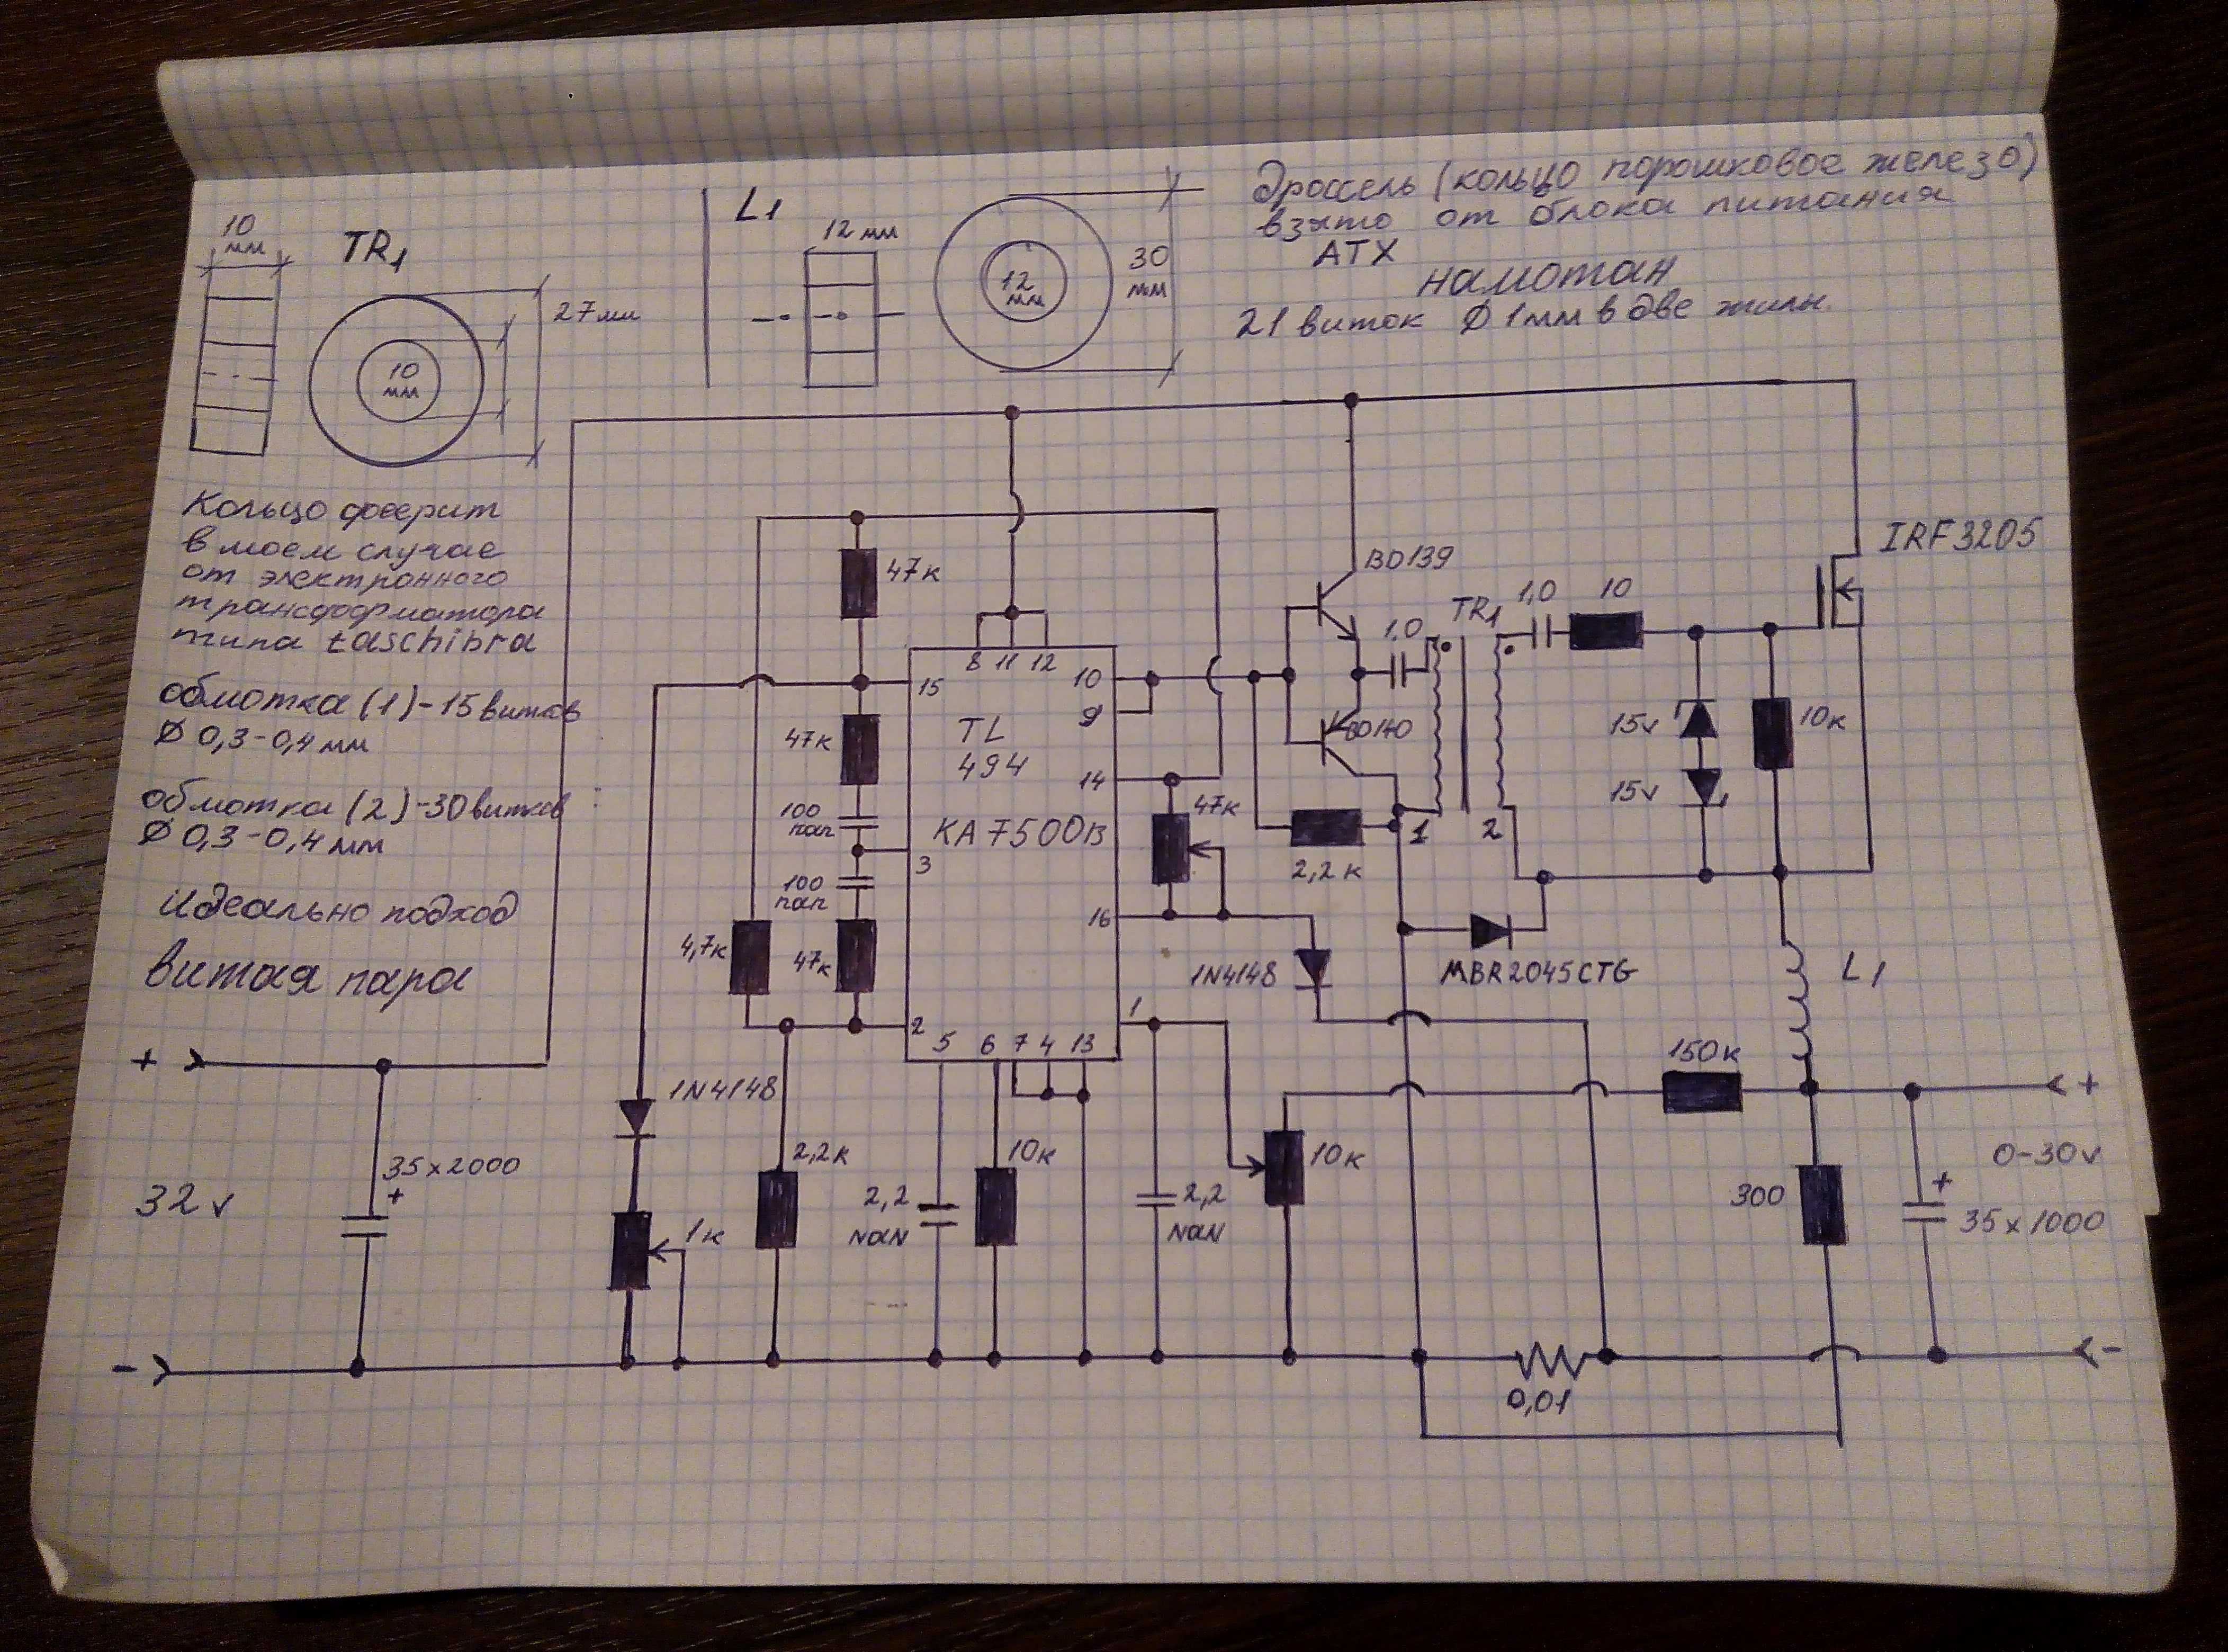 10
мм
TR1
27мм
10
мм
L1
12 мм
12
мм
30
мм
Дроссель (кольцо порошковое железо)
взято от блока питания
ATX
намотан
21 виток Ø 1мм в две жилы.
Кольцо феерит
в моем случае
от электронного
трансформатора
типа taschibra
обмотка (1)-15 витков
Ø 0,3-0,4 мм
обмотка (2)-30 витков
Ø 0,3-0,4 мм
Идеально подход
витая пара
+
32 v
35 x 2000
+
-
47к
47к
100
пап
100
пап
4,7к
47к
1N4148
1к
2,2к
2,2
NaN
10к
8 11 12
15
10
9
TL
494
14
KA7500B
3
16
2
1
5 6 7 4 13
BD139
BD140
1,0
TR1
1,0
10
IRF3205
15v
10к
15v
47к
2,2 к
1
2
1N4148
MBR2045CTG
L1
150к
+
2,2
NaN
10к
300
0-30v
+
35 x 1000
-
0,01